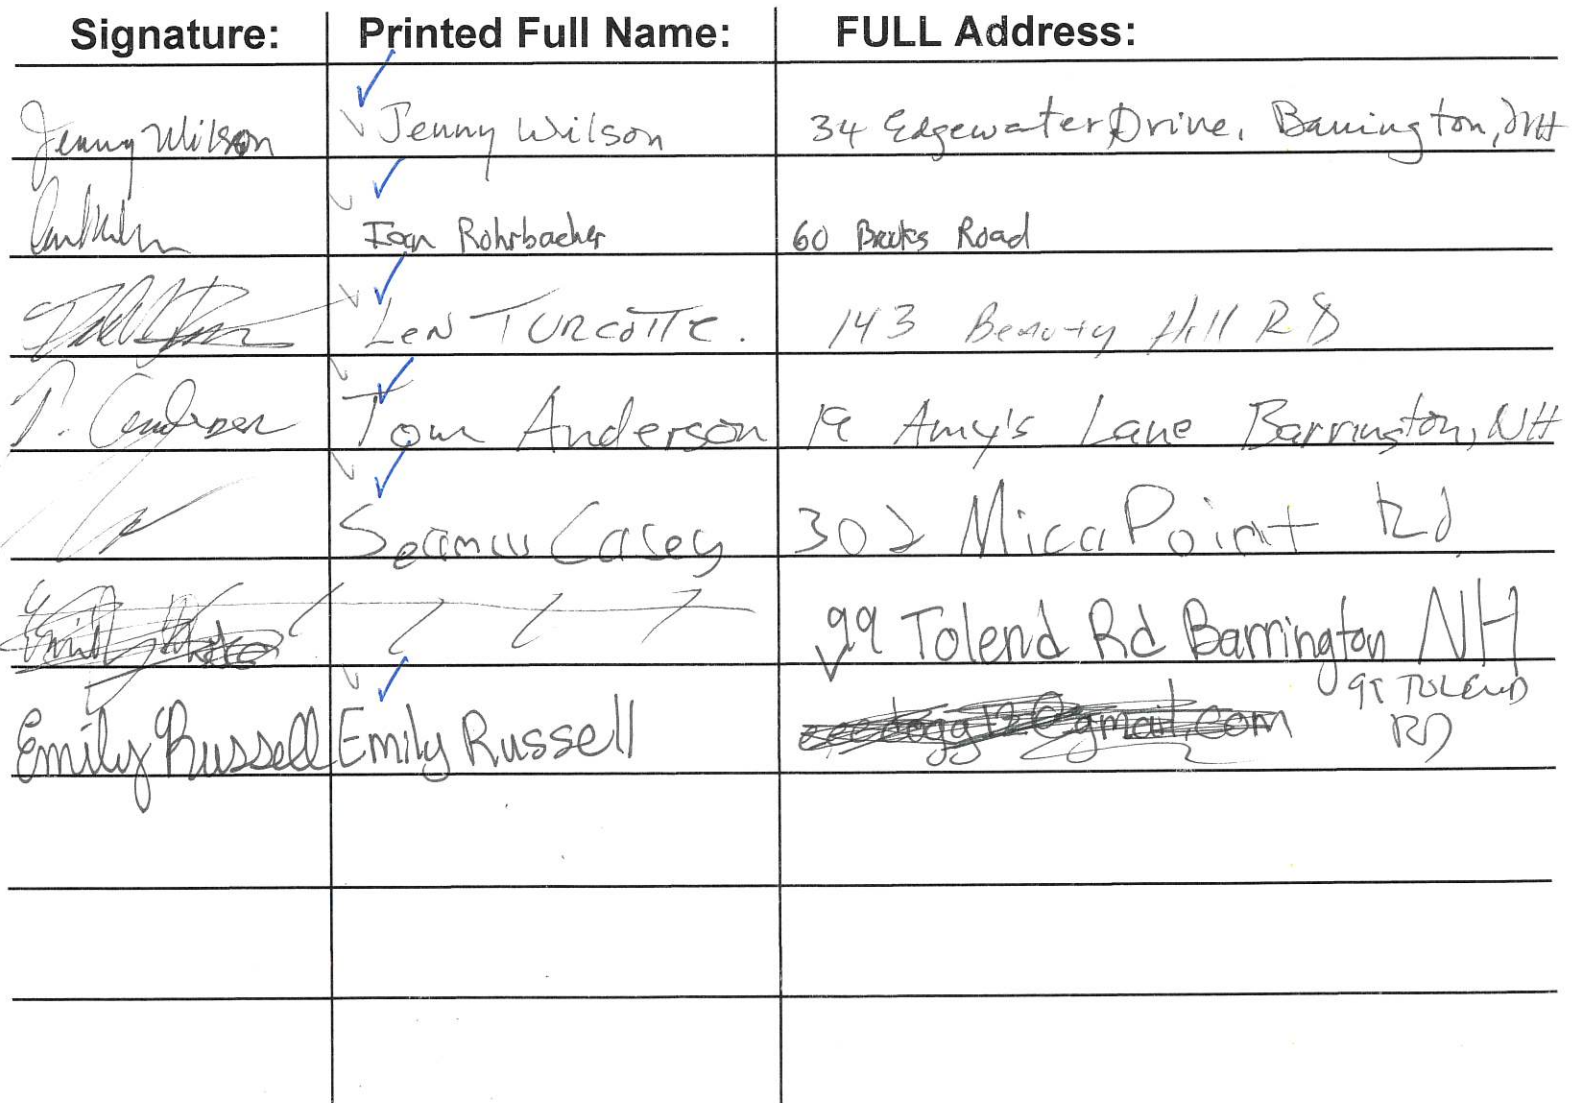 Signature: Printed Full Name: FULL Address:
Jenny Wilson Jenny Wilson 34 Edgewater Drive, Barrington, NH
Rohrbacher 60 Road
Len Turcotte. 143 Beauty Hill RD
T. Anderson Tom Anderson 19 Amy's Lane Barrington, NH
Seamus Casey 302 Mica Point Rd
99 Tolend Rd Barrington NH
Emily Russell Emily Russell @gmail.com 99 TOLEND
RD